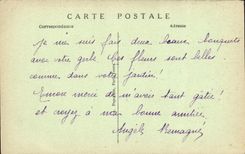 CARTE POSTALE
Correspondance Adresse
Je me suis fait deux beaux bouquets
avec votre gerbe les fleurs sont belles
comme dans votre jardin!
Encore merci de m'avoir tant gâtée!
et croyez à mon bonne amitiée.
Angèle Remagne